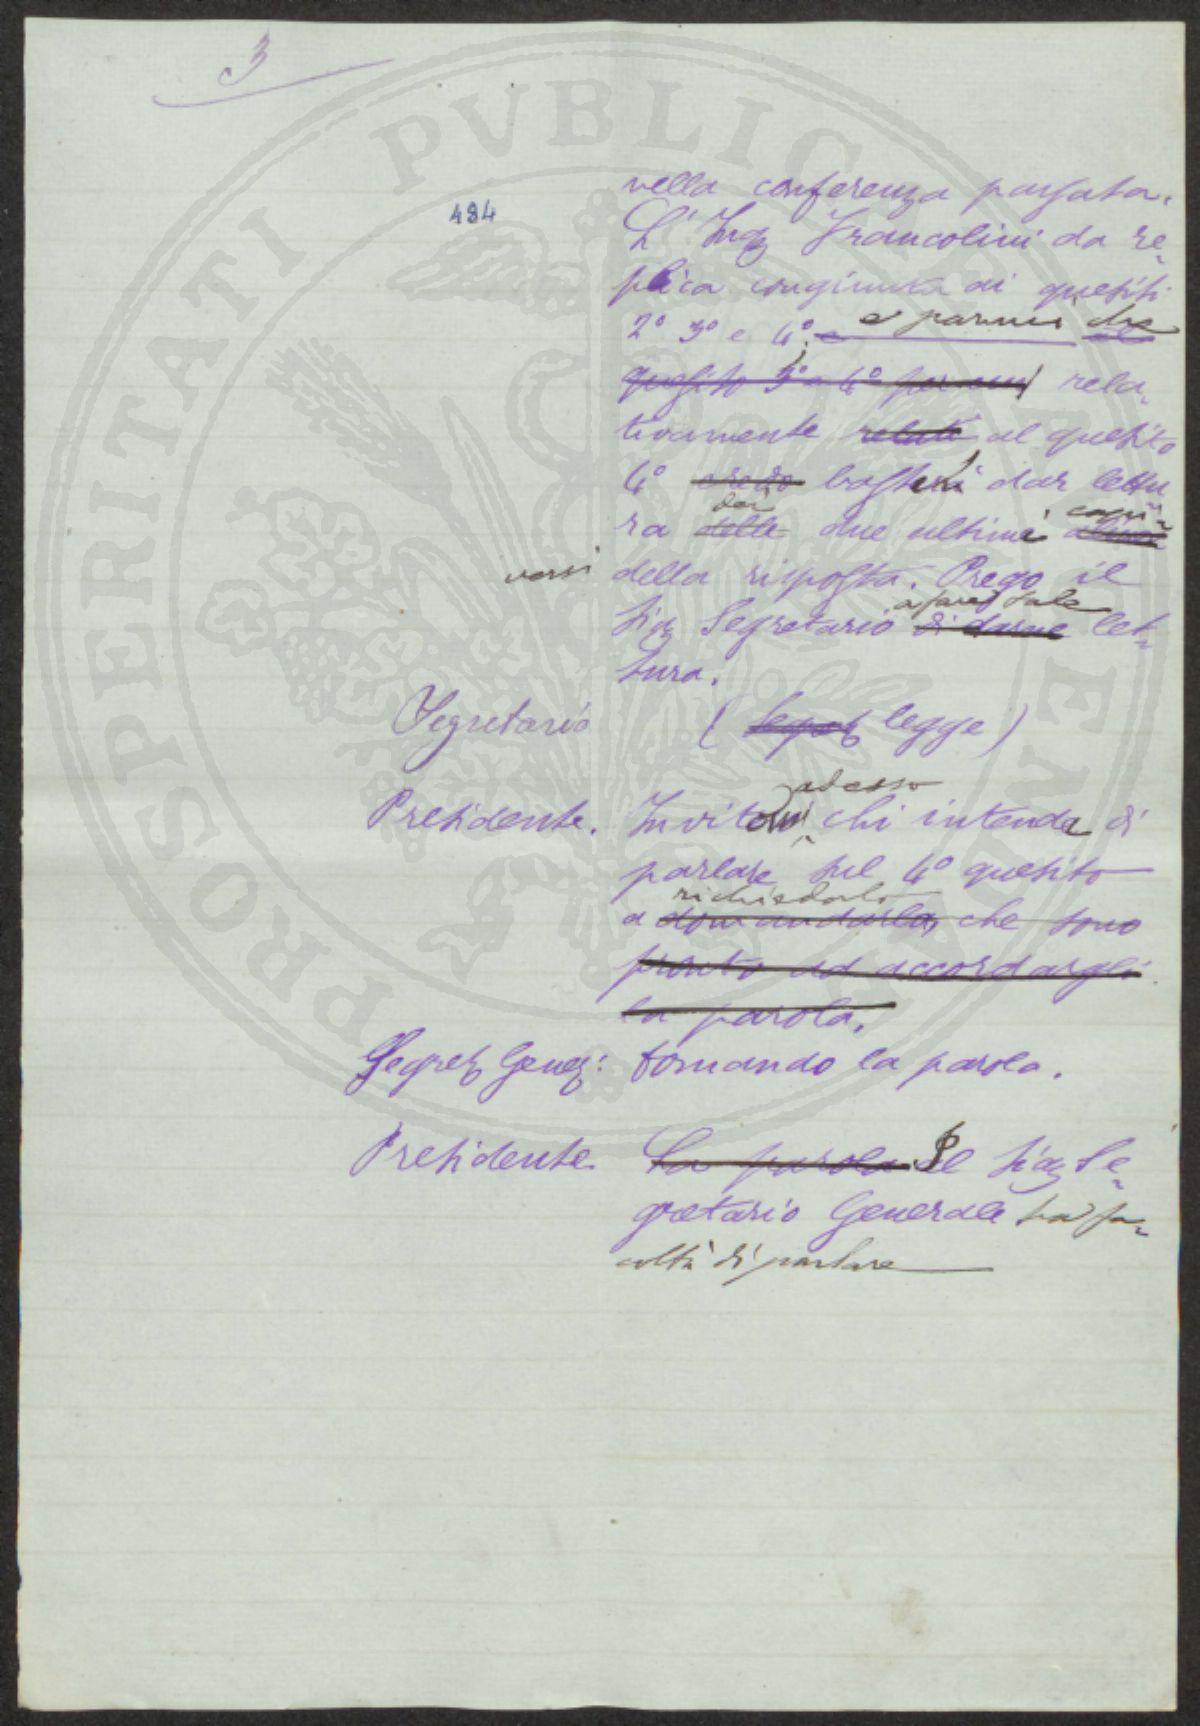 3
484
nella conferenza passata.
L'Ing Francolini da re-
plica congiunta ai quesiti
2° 3° e 4°; e e parmi che al
quesito 3° e 4° per cui rela-
tivamente relati al quesito
4° credo basterà dar lettu-
ra delle dei due ultimi capi-
versi della risposta. Prego il
Sig Segretario di darne let-
tura.
Segretario ( legge)
Presidente. Invito adesso chi intenda di
parlare sul 4° quesito
a domandarla, richiederla che sono
pronto ad accordargli
la parola.
Segret Gener: Domando la parola.
Presidente La parola Il Sig Se-
gretario Generale ha fa-
coltà di parlare
PROSPERITATI PVBLICAE AVGENDAE